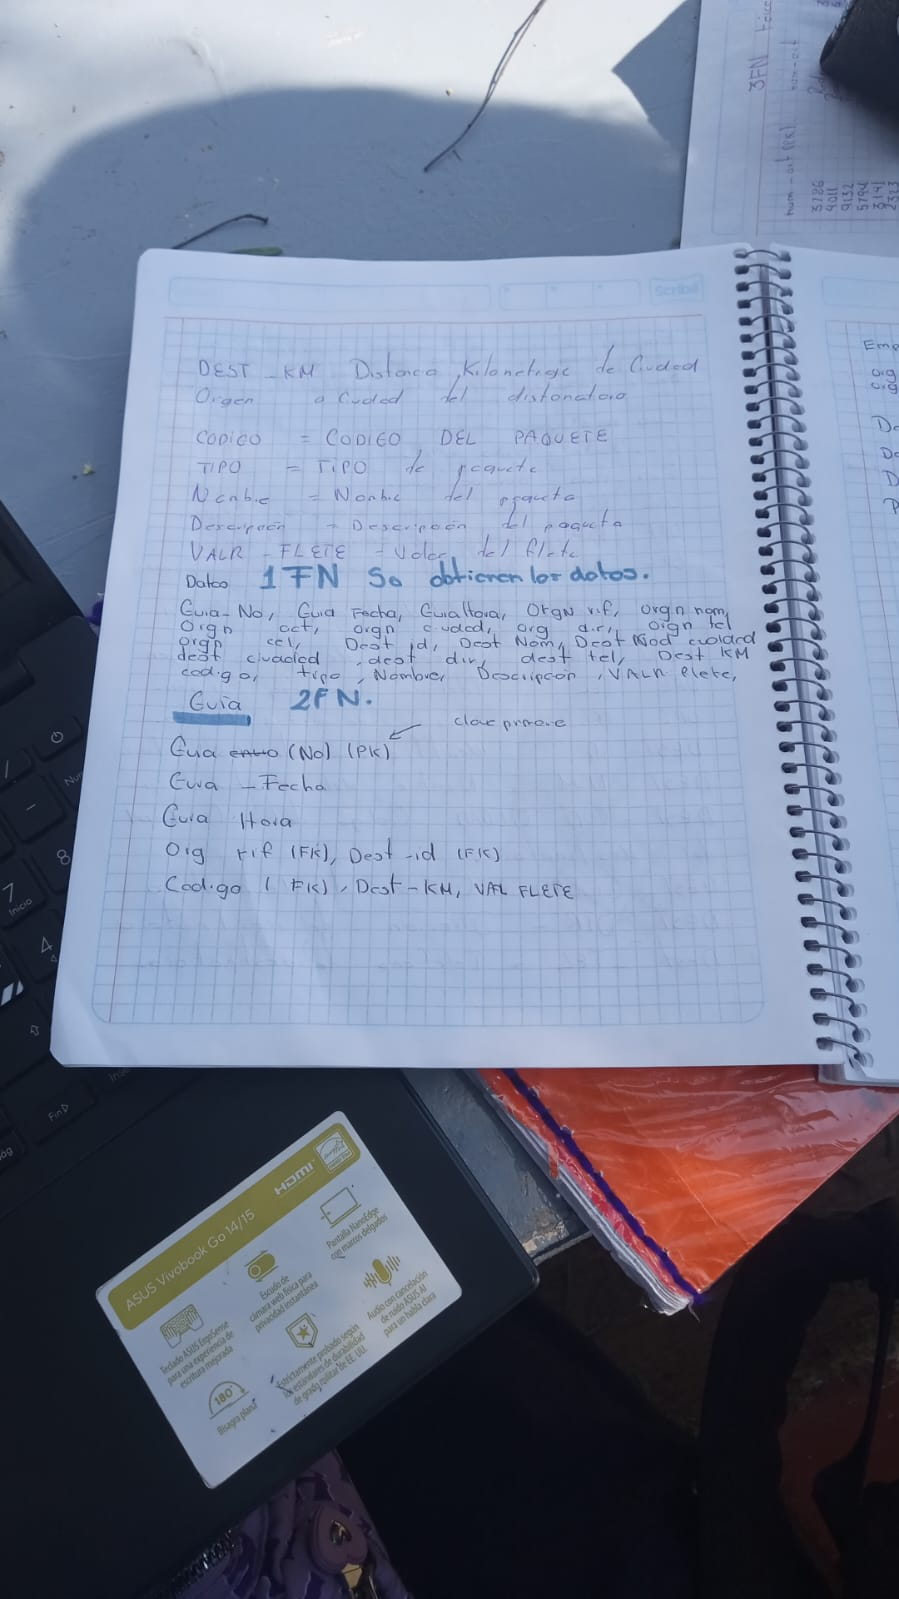 3FN
num-art (PK)
num-art
3786
4011
9132
5794
3141
2323
Scribe
DEST - KM Distancia Kilometraje de Ciudad
Origen a Ciudad del distonatario
CODICO = CODIGO DEL PAQUETE
TIPO = TIPO de paquete
Nombre = Nombre del paquete
Descripción = Descripción del paqueta
VALR - FLETE = Valor del flete
Datos 1FN So obtienen los datos.
Guia-No, Guia Fecha, Guia Hora, Orgn rif, orgn nom,
Orgn act, orgn ciudad, org dir, orgn tel
Orgn cel, Dest id, Dest Nom, Dest Nod ciudad
dest ciudad, dest dir, dest tel, Dest KM
codigo, tipo, Nombre, Descripcon, VALR flete,
Guia 2FN.
clave primere
Guia (No) (PK)
Guia - Fecha
Guia Hora
Org rif (FK), Dest-id (FK)
Codigo (FK), Dest-KM, VAL FLETE
Emp
org
org
De
De
D
P
7
Inicio
8
4
Fin
ASUS Vivobook Go 14/15
HDMI
Teclado ASUS ErgoSense
para una experiencia de
escritura mejorada
Escudo de
cámara web física para
privacidad instantánea
Pantalla NanoEdge
con marcos delgados
180°
Bisagra plana
Estrictamente probado según
los estándares de durabilidad
de grado militar de EE. UU.
Audio con cancelación
de ruido ASUS AI
para un habla clara